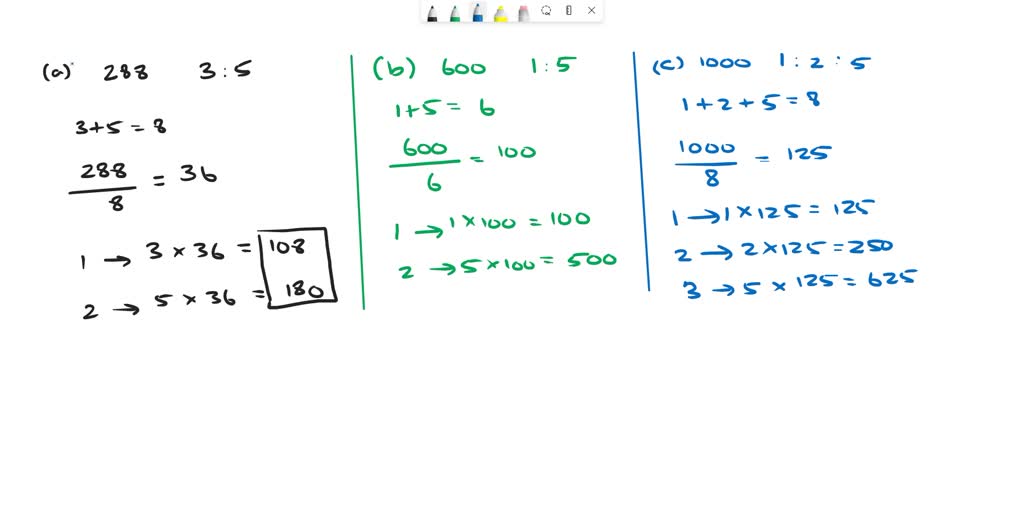 (a) 288 3:5
3+5 = 8
288
8
= 36
1 → 3 × 36 = 108
2 → 5 × 36 = 180
(b) 600 1:5
1+5 = 6
600
6
= 100
1 → 1×100 = 100
2 → 5×100 = 500
(c) 1000 1:2:5
1+2+5 = 8
1000
8
= 125
1 → 1×125 = 125
2 → 2×125 = 250
3 → 5 × 125 = 625